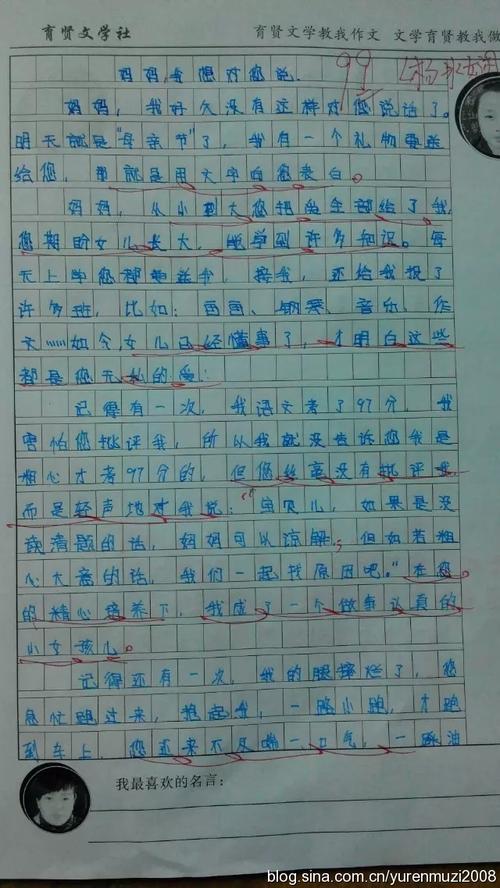 育贤文学社 育贤文学教我作文 文学育贤教我做
妈妈,我想对您说. 99
妈妈,我好久没有这样对您说话了。
明天就是"母亲节"了,我有一个礼物要送
给您,那就是用文字向您表白。
妈妈,从小到大您把全部给了我,
您期盼女儿长大,能学到许多知识。每
天上学您都要送我,接我,还给我报了
许多班,比如:画画、钢琴、音乐、作
文……如今,女儿已经懂事了,才明白这些
都是您无私的爱.
记得有一次,我语文考了97分,我
害怕您批评我,所以我就没告诉您我是
粗心才考97分的,但您丝毫没有批评我
而是轻声地对我说:"宝贝儿,如果是没
读清题的话,妈妈可以谅解,但如若粗
心大意的话,我们一起找原因吧。"在您
的精心培养下,我成了一个做事认真的
小女孩儿。
记得还有一次,我的腿摔烂了,您
急忙跑过来,抱起我,一路小跑,才跑
到车上,您还来不及喘一口气,一踩油
我最喜欢的名言:
blog.sina.com.cn/yurenmuzi2008